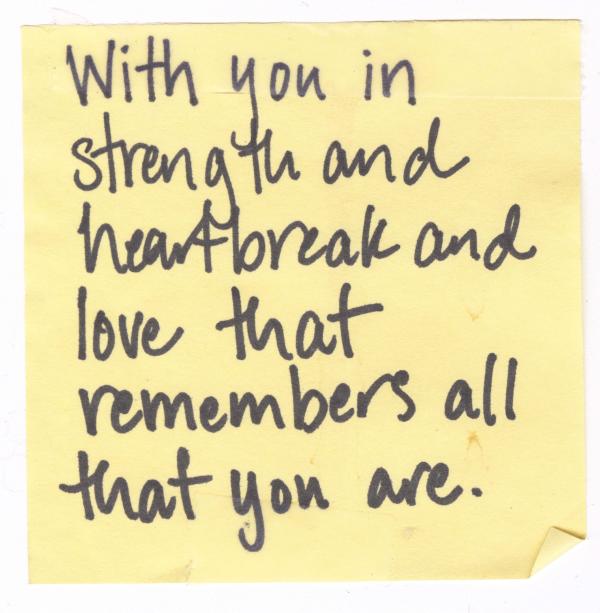 With you in
strength and
heartbreak and
love that
remembers all
that you are.